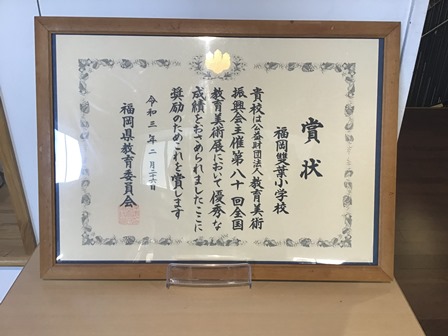 賞状
福岡雙葉小学校
貴校は公益財団法人教育美術
振興会主催第八十回全国
教育美術展において優秀な
成績をおさめられましたここに
奨励のためこれを賞します
令和三年二月二十六日
福岡県教育委員会